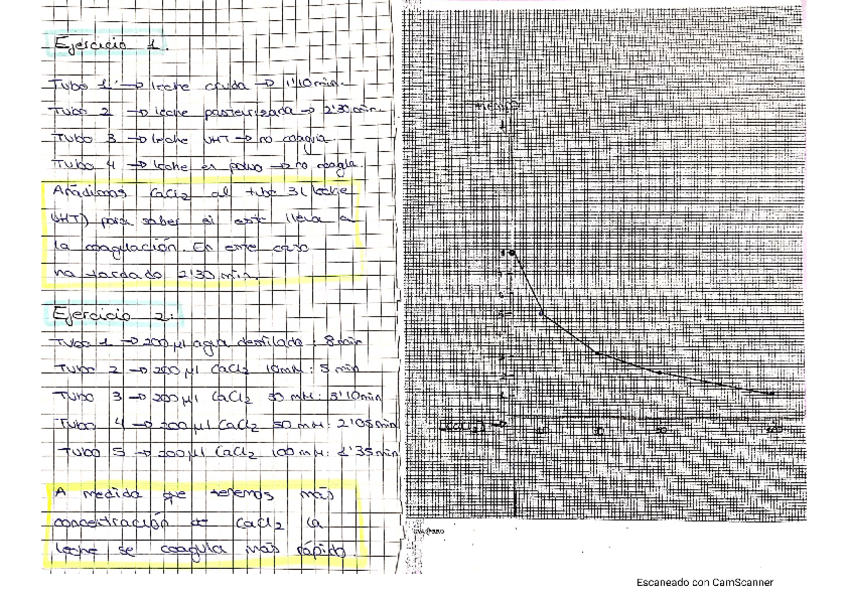 Ejercicio 1.
Tubo 1 → leche cruda → 1'10 min.
Tubo 2 → leche pasteurizada → 2'30 min.
Tubo 3 → leche UHT → no coagula.
Tubo 4 → leche en polvo → no coagla.
Añadimos CaCl2 al tubo 3 (leche
UHT) para saber si este lleva a
la coagulación. En este caso
ha tardado 2'30 min.
Ejercicio 2:
Tubo 1 → 200 μl agua destilada : 8 min
Tubo 2 → 200 μl CaCl2 10mM : 5 min
Tubo 3 → 200 μl CaCl2 30 mM : 3'10min
Tubo 4 → 200 μl CaCl2 50 mM : 2'05 min
Tubo 5 → 200 μl CaCl2 100 mM : 35 min
A medida que tenemos más
concentración de CaCl2 la
leche se coagula más rápido.
tiempo
Escaneado con CamScanner